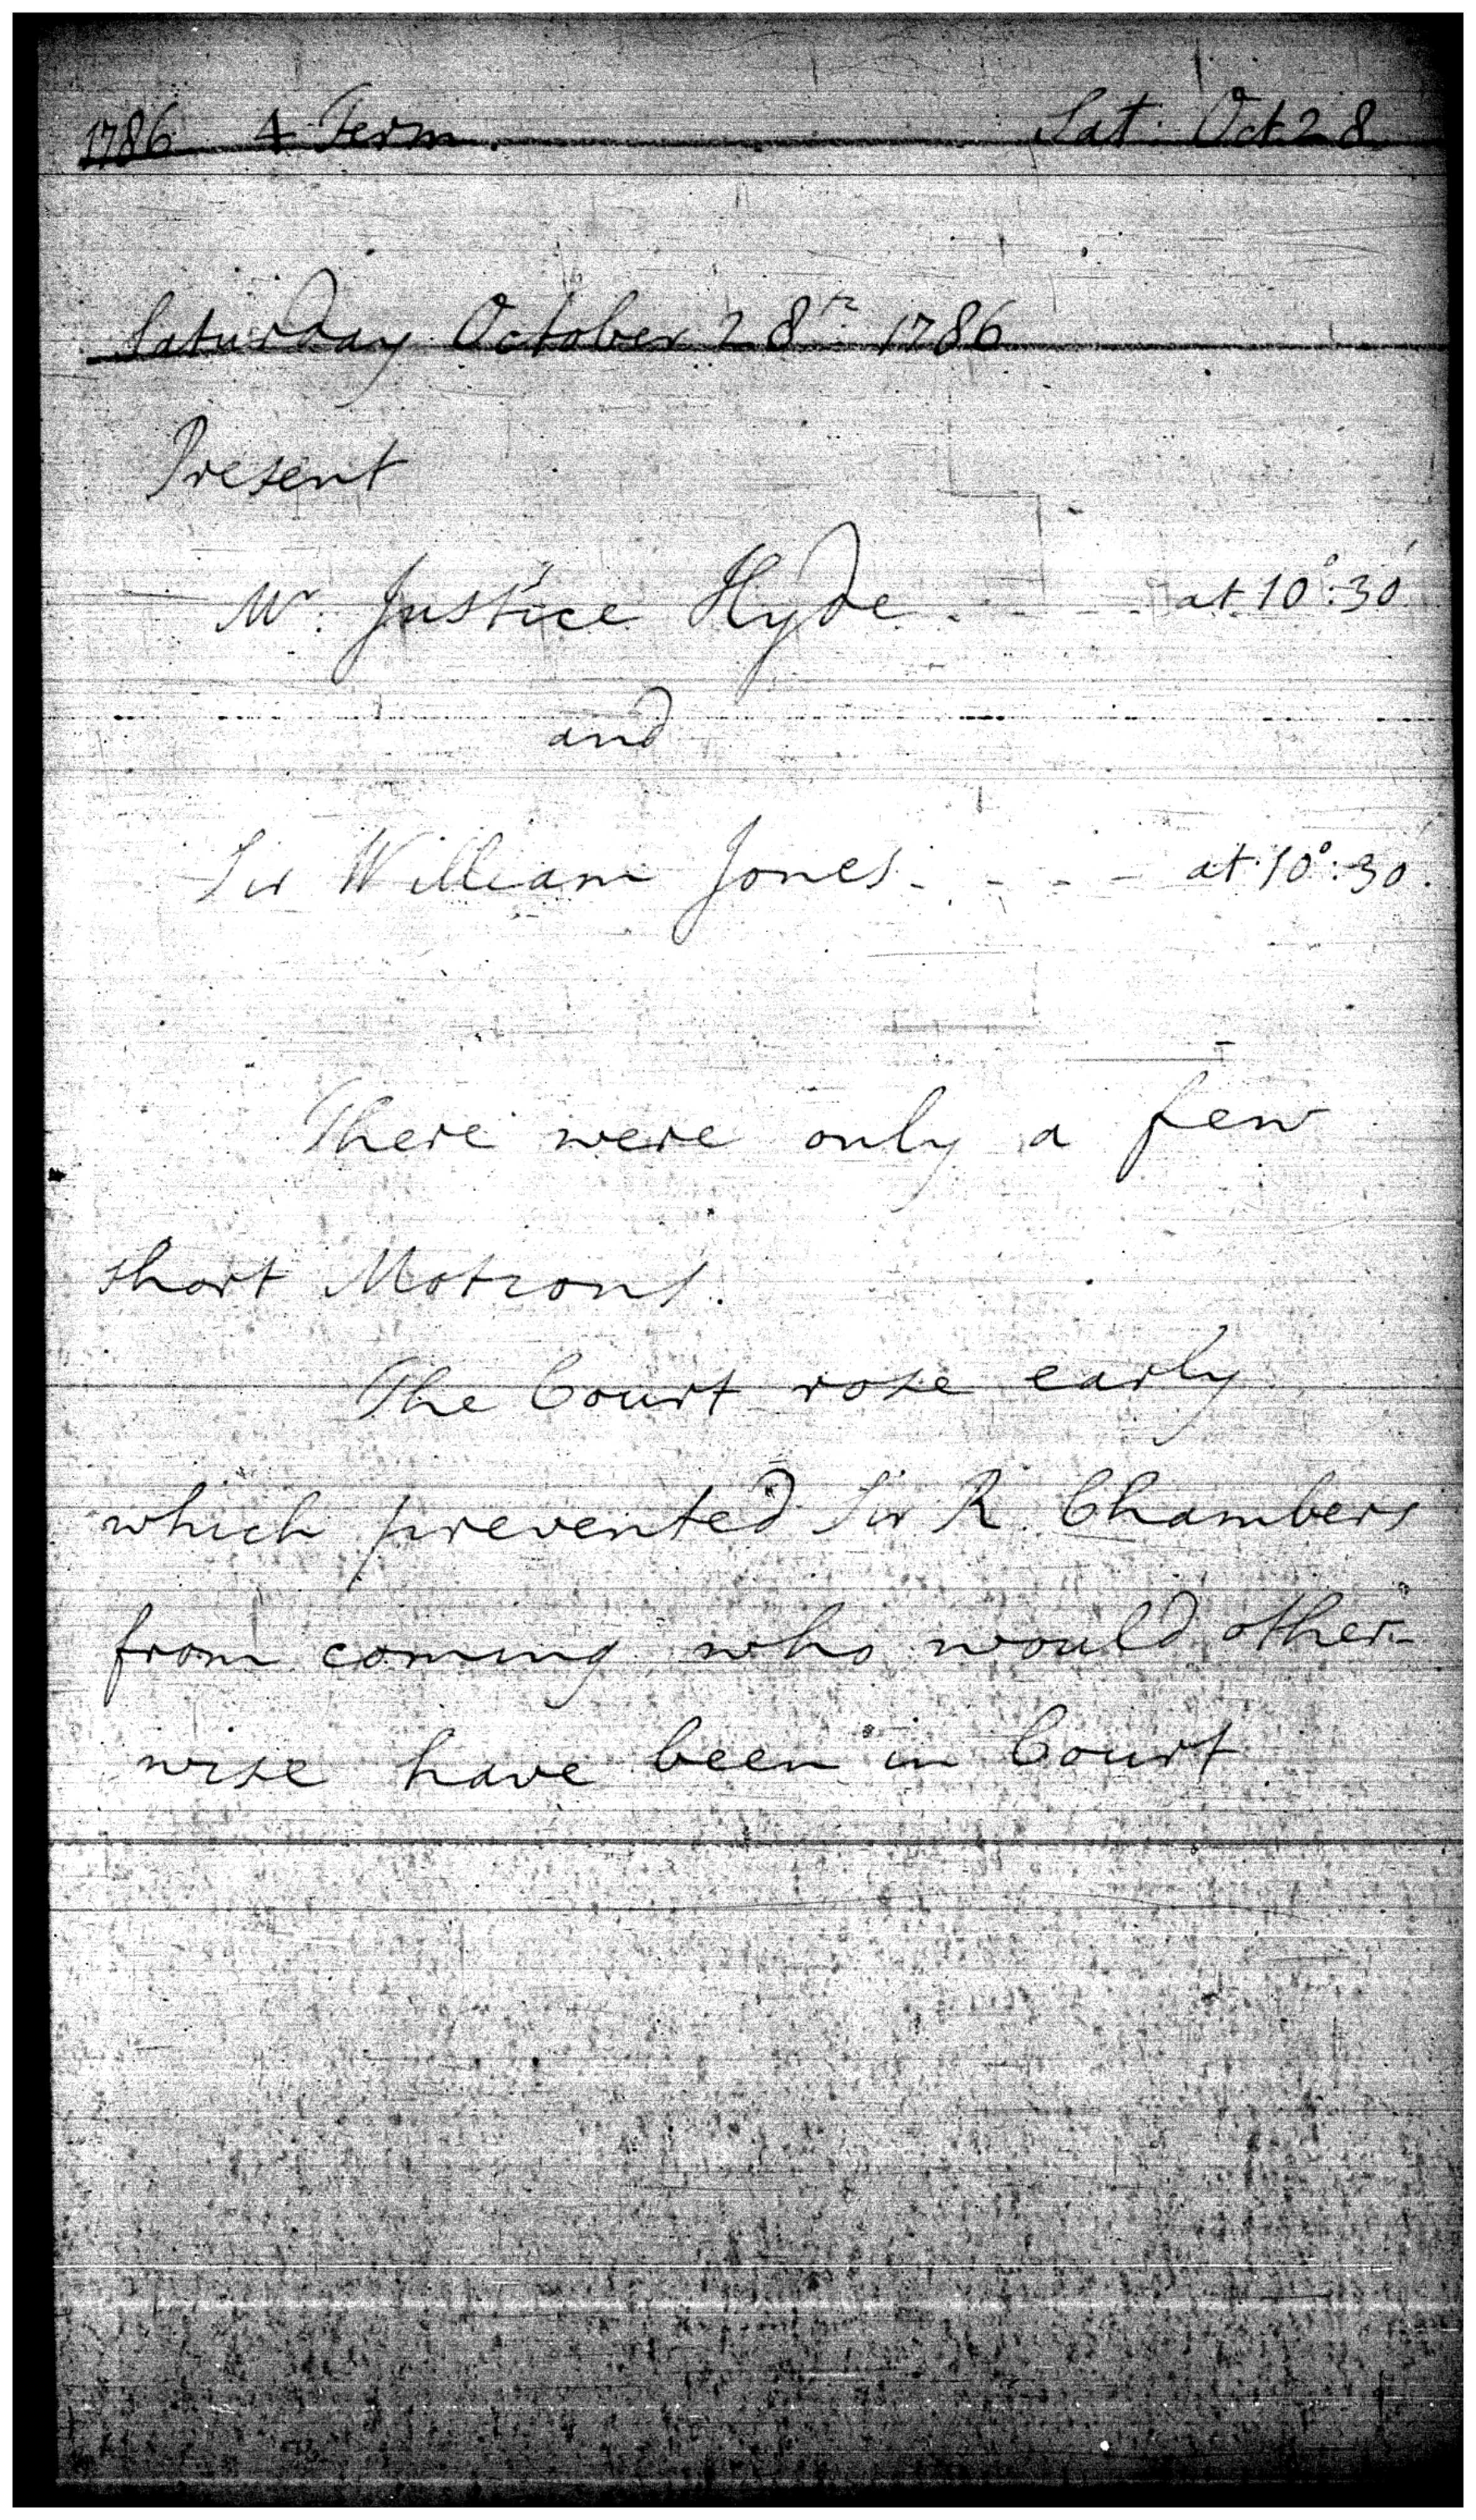 1786 4 Term. Sat. Oct 28
Saturday October 28th 1786
Present
Mr. Justice Hyde. - - - at 10°:30'
and
Sir William Jones. - - - at 10°:30'.
There were only a few
short Motions.
The Court rose early
which prevented Sir R. Chambers
from coming who would other-
wise have been in Court.